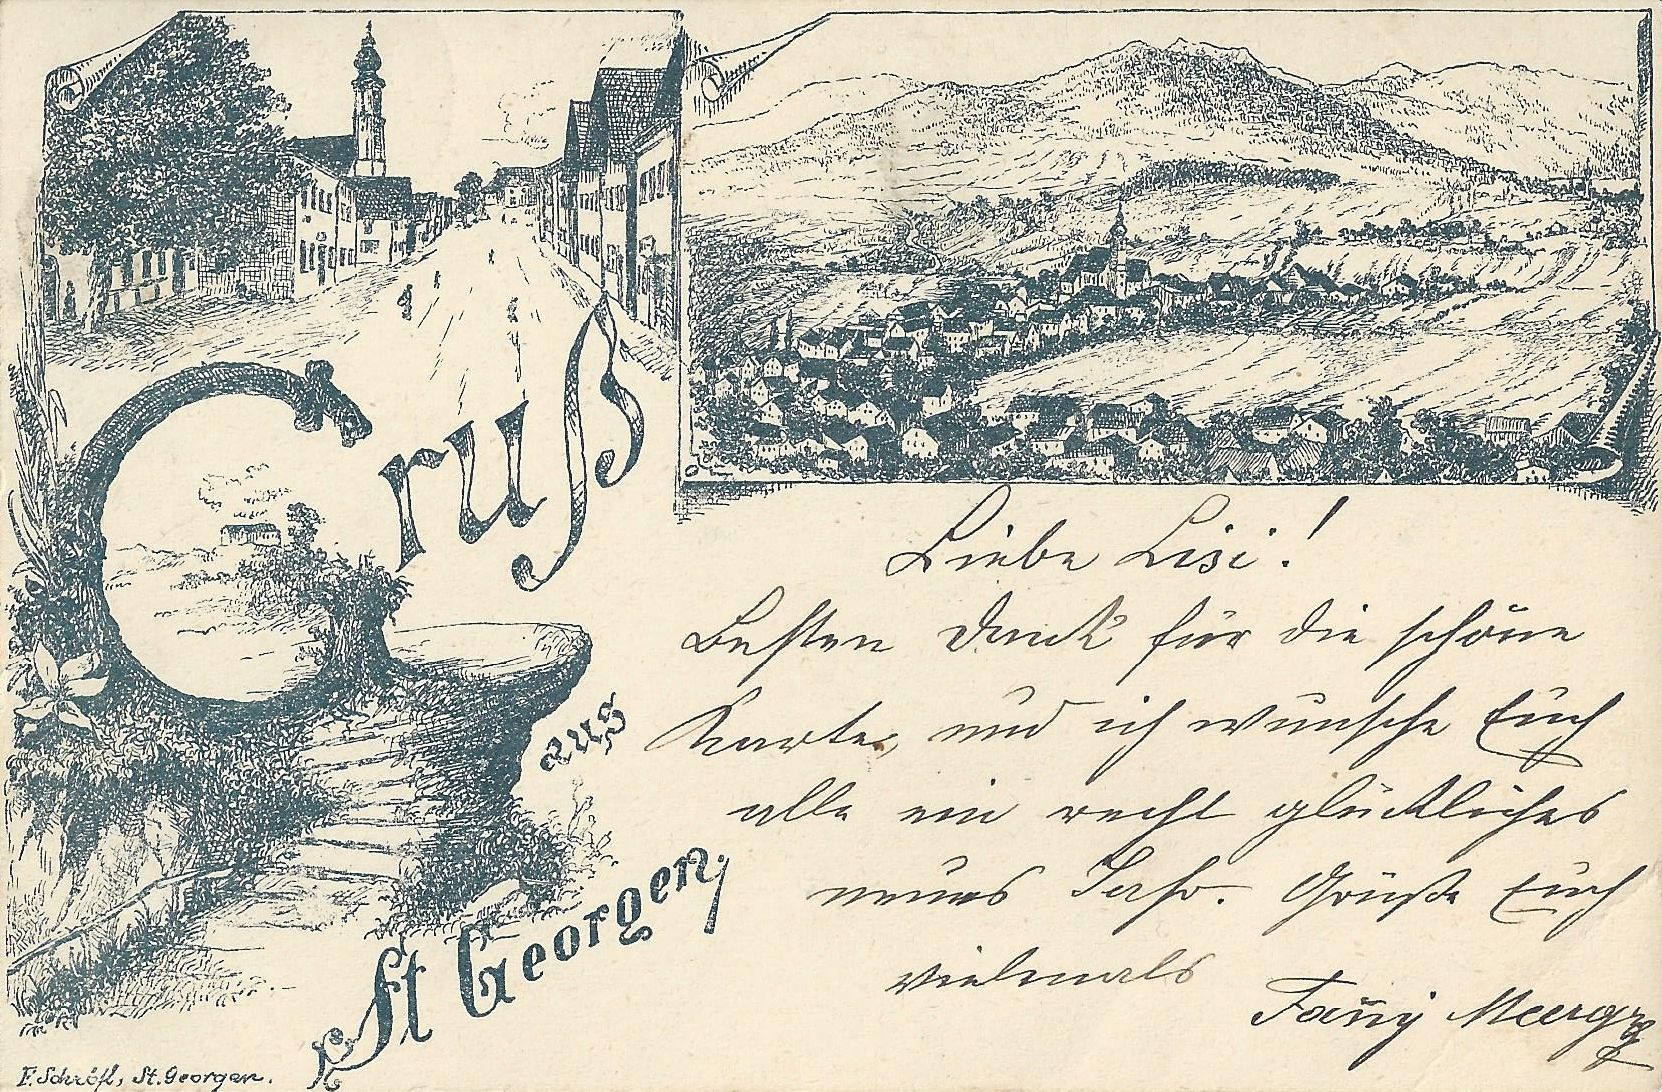 Gruß
aus
St Georgen,
Liebe Lisi!
Besten Dank für die schöne
Karte, und ich wünsche Euch
alle ein recht glückliches
neues Jahr. Grüße Euch
vielmals
Fanny
F. Schröfl, St. Georgen.